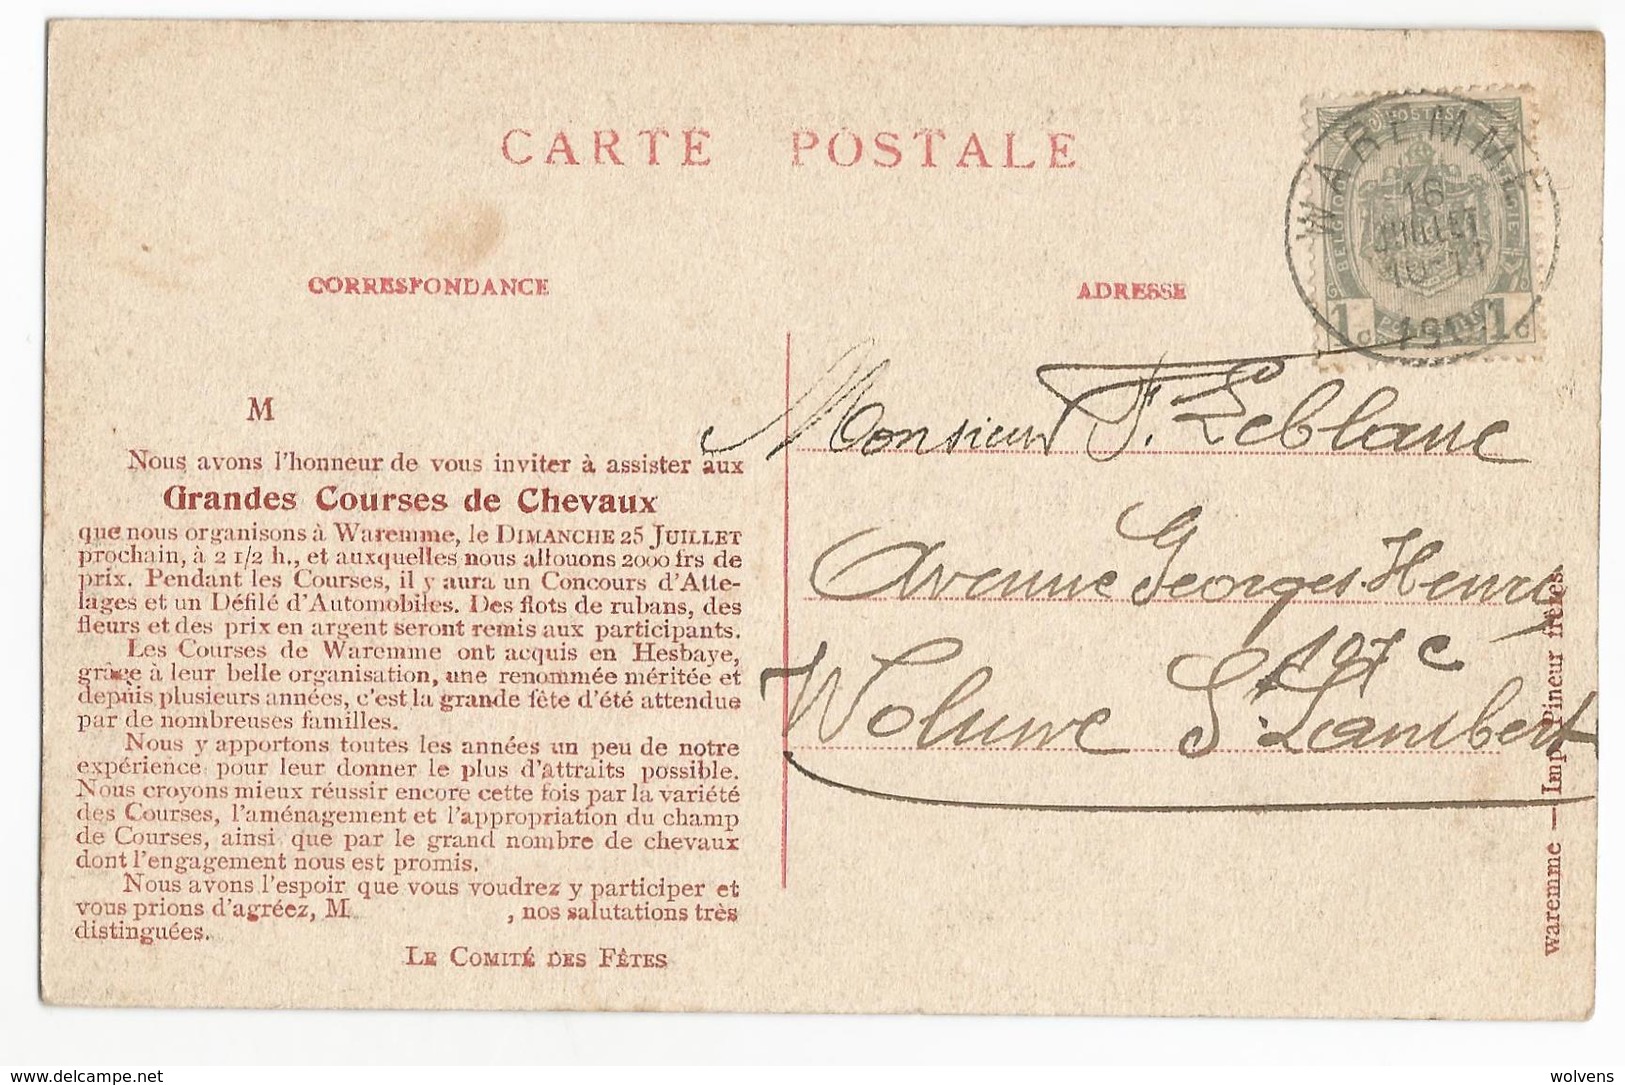 CARTE POSTALE
WAREMME
16
JUILLET
10-11
POSTES
1c 1c
CORRESPONDANCE
ADRESSE
M
Nous avons l'honneur de vous inviter à assister aux
Grandes Courses de Chevaux
que nous organisons à Waremme, le DIMANCHE 25 JUILLET
prochain, à 2 1/2 h., et auxquelles nous allouons 2000 frs de
prix. Pendant les Courses, il y aura un Concours d'Atte-
lages et un Défilé d'Automobiles. Des flots de rubans, des
fleurs et des prix en argent seront remis aux participants.
Les Courses de Waremme ont acquis en Hesbaye,
grâce à leur belle organisation, une renommée méritée et
depuis plusieurs années, c'est la grande fête d'été attendue
par de nombreuses familles.
Nous y apportons toutes les années un peu de notre
expérience pour leur donner le plus d'attraits possible.
Nous croyons mieux réussir encore cette fois par la variété
des Courses, l'aménagement et l'appropriation du champ
de Courses, ainsi que par le grand nombre de chevaux
dont l'engagement nous est promis.
Nous avons l'espoir que vous voudrez y participer et
vous prions d'agréez, M , nos salutations très
distinguées.
LE COMITÉ DES FÊTES
Monsieur F. Leblanc
Avenue Georges Henry
107 c
Woluwe St. Lambert
waremme — Imp. Pineur frères.
wolvens
delcampe.net